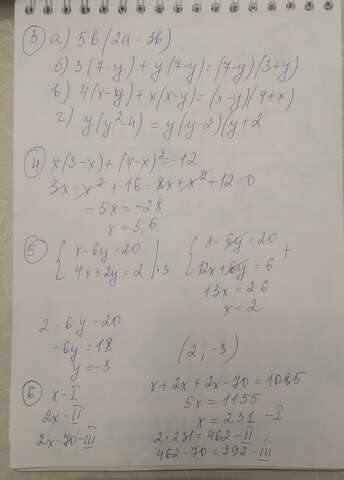 ③ а) 5b(2a-3b)
б) 3(7-y)+y(7-y)=(7-y)(3+y)
в) 4(x-y)+x(x-y)=(x-y)(4+x)
г) y(y²-4)=y(y-2)(y+2
④ x(3-x)+(4-x)²=-12
3x-x²+16-8x+x²+12=0
-5x=-28
x=5,6
⑤ { x-6y=20
4x+2y=2 |·3
{ x-6y=20
12x+6y=6 +
13x=26
x=2
2-6y=20
-6y=18
y=-3
(2;-3)
⑥ x-I
2x-II
2x-70-III
x+2x+2x-70=1085
5x=1155
x=231 -I
2·231=462-II
462-70=392-III